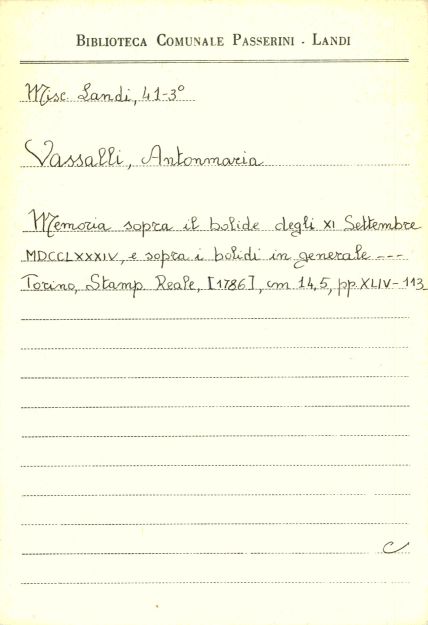 BIBLIOTECA COMUNALE PASSERINI - LANDI
Misc. Landi, 41-3°
Vassalli, Antonmaria
Memoria sopra il bolide degli XI Settembre
MDCCLXXXIV, e sopra i bolidi in generale ---
Torino, Stamp. Reale, [1786], cm 14,5, pp. XLIV-113
C